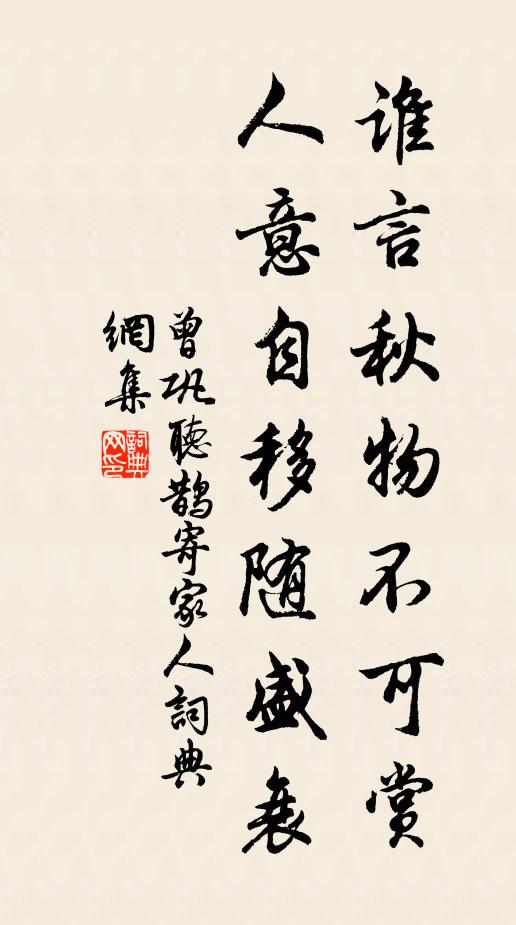 誰言秋物不可賞
人意自移随盛衰
曾巩聽鵲寄家人詞典
網集
詞典
网印